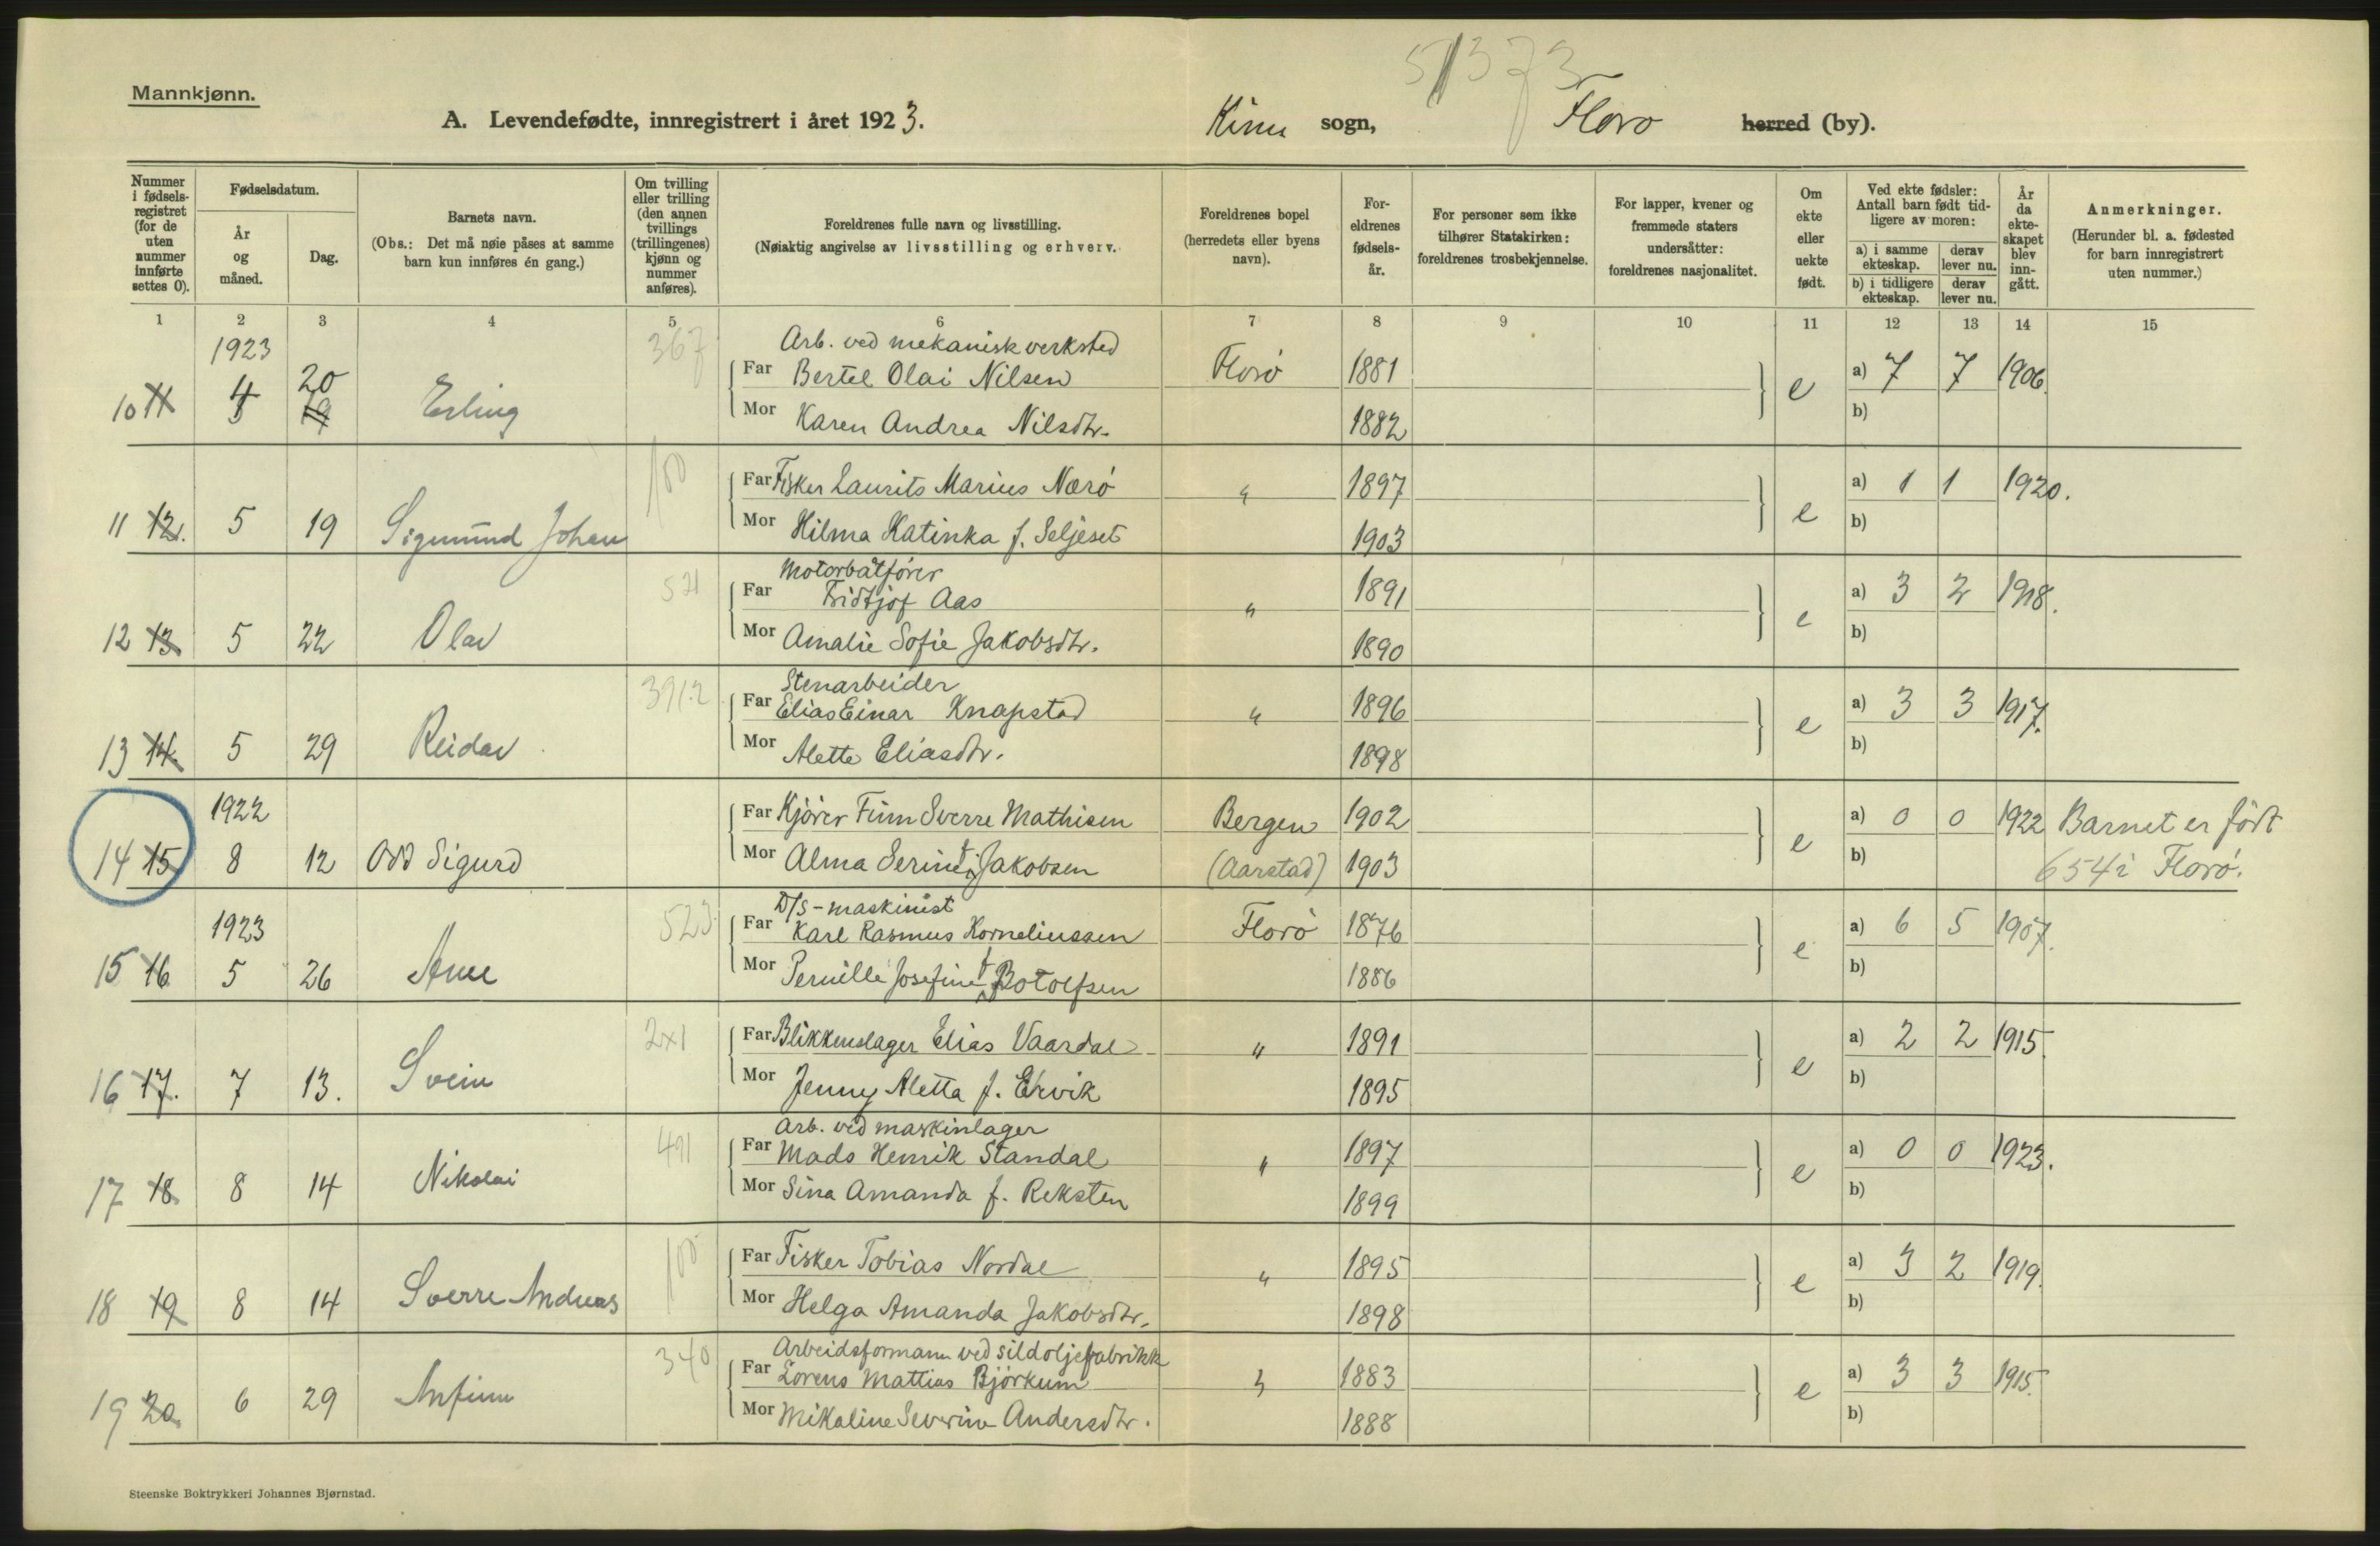 51373
Mannkjønn.
A. Levendefødte, innregistrert i året 1923. Kinn sogn, Florø herred (by).
Nummer i fødsels-registret (for de uten nummer innførte settes 0).
Fødselsdatum.
År og måned.
Dag.
Barnets navn.
(Obs.: Det må nøie påses at samme barn kun innføres én gang.)
Om tvilling eller trilling (den annen tvillings (trillingenes) kjønn og nummer anføres).
Foreldrenes fulle navn og livsstilling.
(Nøiaktig angivelse av livsstilling og erhverv.
Foreldrenes bopel (herredets eller byens navn).
For-eldrenes fødsels-år.
For personer som ikke tilhører Statskirken: foreldrenes trosbekjennelse.
For lapper, kvener og fremmede staters undersåtter: foreldrenes nasjonalitet.
Om ekte eller uekte født.
Ved ekte fødsler: Antall barn født tid-ligere av moren:
a) i samme ekteskap. derav lever nu.
b) i tidligere ekteskap. derav lever nu.
År da ekte-skapet blev inn-gått.
Anmerkninger.
(Herunder bl. a. fødested for barn innregistrert uten nummer.)
1 2 3 4 5 6 7 8 9 10 11 12 13 14 15
1923 367 Arb. ved mekanisk verksted
20 Far Bertel Olai Nilsen Florø 1881 a) 7 7 1906.
10 11 4 19 Erling e
Mor Karen Andrea Nilsdtr. 1882 b)
100 Far Fisker Laurits Marius Nærø " 1897 a) 1 1 1920.
11 12. 5 19 Sigmund Johan e
Mor Hilma Katinka f. Seljeset 1903 b)
521 Motorbåtfører
Far Fridtjof Aas " 1891 a) 3 2 1918.
12 13. 5 22 Olav e
Mor Amalie Sofie Jakobsdtr. 1890 b)
391.2 Stenarbeider
Far Elias Einar Knapstad " 1896 a) 3 3 1917.
13 14. 5 29 Reidar e
Mor Alette Eliasdtr. 1898 b)
1922 Far Kjører Finn Sverre Mathisen Bergen 1902 a) 0 0 1922 Barnet er født
14 15 8 12 Odd Sigurd e
Mor Alma Serine f. Jakobsen (Aarstad) 1903 b) 654 i Florø.
523 D/S-maskinist
1923 Far Karl Rasmus Korneliussen Florø 1876 a) 6 5 1907.
15 16 5 26 Arne e
Mor Pernille Josefine f. Botolfsen 1886 b)
2x1 Far Blikkenslager Elias Vaardal " 1891 a) 2 2 1915.
16 17. 7 13. Svein e
Mor Jenny Aletta f. Ervik 1895 b)
491 Arb. ved maskinlager
Far Mads Henrik Standal " 1897 a) 0 0 1923.
17 18. 8 14 Nikolai e
Mor Sina Amanda f. Reksten 1899 b)
100 Far Fisker Tobias Nordal " 1895 a) 3 2 1919.
18 19 8 14 Sverre Andreas e
Mor Helga Amanda Jakobsdtr. 1898 b)
340 Arbeidsformann ved sildoljefabrikk
Far Lorens Mattias Bjørkum " 1883 a) 3 3 1915.
19 20. 6 29 Arnfinn e
Mor Mikaline Severine Andersdtr. 1888 b)
Steenske Boktrykkeri Johannes Bjørnstad.